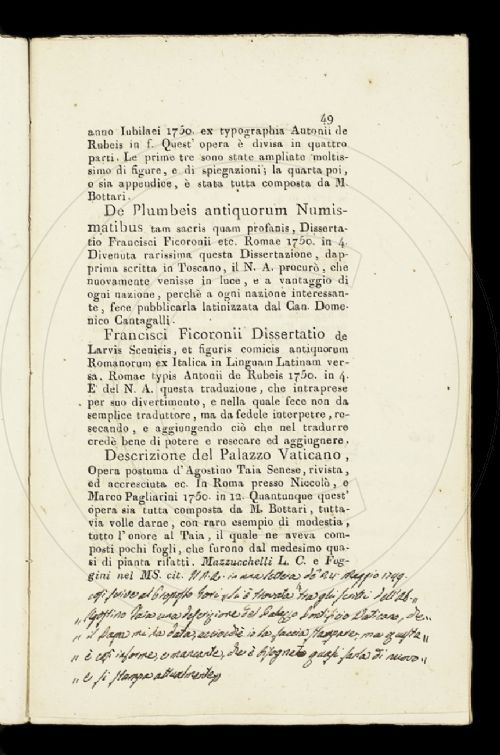 49
anno Iubilaei 1750. ex typographia Antonii de
Rubeis in f. Quest' opera è divisa in quattro
parti. Le prime tre sono state ampliate moltis-
simo di figure, e di spiegazioni; la quarta poi,
o sia appendice, è stata tutta composta da M.
Bottari.
De Plumbeis antiquorum Numis-
matibus tam sacris quam profanis, Disserta-
tio Francisci Ficoronii etc. Romae 1750. in 4.
Divenuta rarissima questa Dissertazione, dap-
prima scritta in Toscano, il N. A. procurò, che
nuovamente venisse in luce, e a vantaggio di
ogni nazione, perchè a ogni nazione interessan-
te, fece pubblicarla latinizzata dal Can. Dome-
nico Cantagalli.
Francisci Ficoronii Dissertatio de
Larvis Scenicis, et figuris comicis antiquorum
Romanorum ex Italica in Linguam Latinam ver-
sa. Romae typis Antonii de Rubeis 1750. in 4.
E' del N. A. questa traduzione, che intraprese
per suo divertimento, e nella quale fece non da
semplice traduttore, ma da fedele interpetre, re-
secando, e aggiungendo ciò che nel tradurre
credè bene di potere e resecare ed aggiugnere.
Descrizione del Palazzo Vaticano,
Opera postuma d'Agostino Taia Senese, rivista,
ed accresciuta ec. In Roma presso Niccolò, e
Marco Pagliarini 1750. in 12. Quantunque quest'
opera sia tutta composta da M. Bottari, tutta-
via volle darne, con raro esempio di modestia,
tutto l'onore al Taia, il quale ne aveva com-
posti pochi fogli, che furono dal medesimo qua-
si di pianta rifatti. Mazzucchelli L. C. e Fug-
gini nel MS. cit. Il N. A. in una lettera de' 24 Maggio 1749.
così scrive al Proposto Gori: Si è trovata tra gli scritti dell'Ab.
„ Agostino Taia una descrizione del Palazzo Pontificio Vaticano, e
„ il Papa mi ha data, acciocchè io la faccia stampare, ma questa „
„ è così informe, e mancante, che è bisognato quasi farla di nuovo „
„ e si stampa attualmente